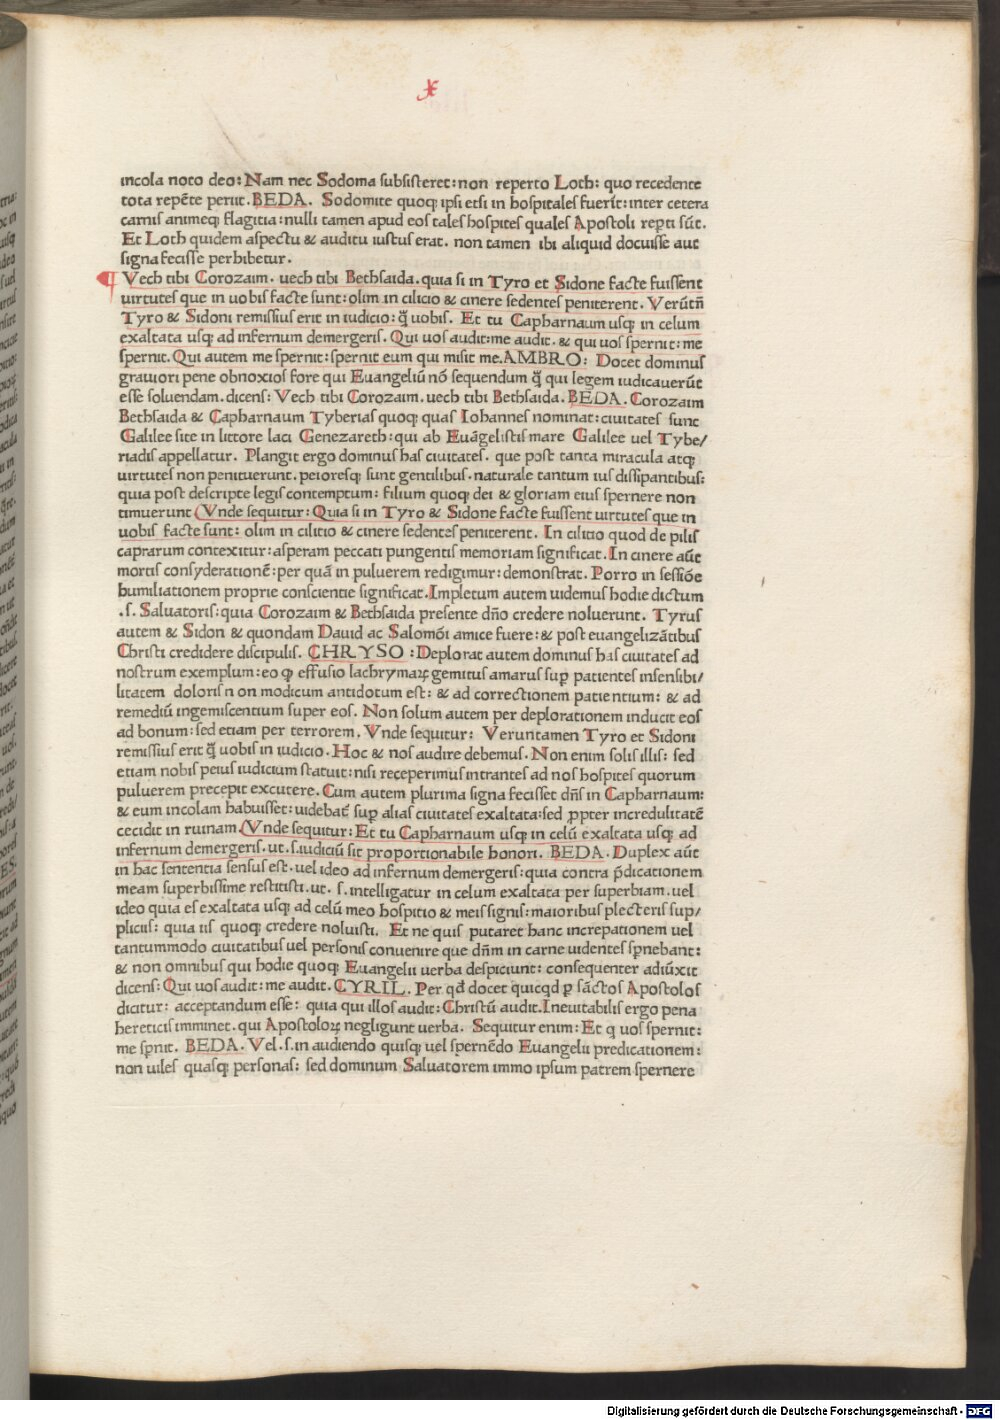 x
incola noto deo: Nam nec Sodoma subsisteret: non reperto Loth: quo recedente
tota repẽte periit. BEDA. Sodomite quoq; ipsi etsi in hospitales fuerĩt: inter cetera
carnis animeq; flagitia: nulli tamen apud eos tales hospites quales Apostoli repti sũt.
Et Loth quidem aspectu & auditu iustus erat. non tamen ibi aliquid docuisse aut
signa fecisse perhibetur.
¶ Vech tibi Corozaim. uech tibi Bethsaida. quia si in Tyro et Sidone facte fuissent
uirtutes que in uobis facte sunt: olim in cilicio & cinere sedentes peniterent. Verũtñ
Tyro & Sidoni remissius erit in iudicio: q̃ uobis. Et tu Capharnaum usq; in celum
exaltata usq; ad infernum demergeris. Qui uos audit: me audit. & qui uos spernit: me
spernit. Qui autem me spernit: spernit eum qui misit me. AMBRO: Docet dominus
grauiori pene obnoxios fore qui Euangeliũ nõ sequendum q̃ qui legem iudicauerũt
esse soluendam. dicens: Vech tibi Corozaim. uech tibi Bethsaida. BEDA. Corozaim
Bethsaida & Capharnaum Tyberias quoq; quas Iohannes nominat: ciuitates sunt
Galilee site in littore laci Genezareth: qui ab Euãgelistis mare Galilee uel Tybe/
riadis appellatur. Plangit ergo dominus has ciuitates. que post tanta miracula atq;
uirtutes non penituerunt. peioresq; sunt gentilibus. naturale tantum ius dissipantibus:
quia post descripte legis contemptum: filium quoq; dei & gloriam eius spernere non
timuerunt. Vnde sequitur: Quia si in Tyro & Sidone facte fuissent uirtutes que in
uobis facte sunt: olim in cilitio & cinere sedentes peniterent. In cilitio quod de pilis
caprarum contexitur: asperam peccati pungentis memoriam significat. In cinere aũt
mortis consyderationẽ: per quã in puluerem redigimur: demonstrat. Porro in sessiõe
humiliationem proprie conscientie significat. Impletum autem uidemus hodie dictum
.s. Saluatoris: quia Corozaim & Bethsaida presente dño credere noluerunt. Tyrus
autem & Sidon & quondam Dauid ac Salomõi amice fuere: & post euangelizãtibus
Christi credidere discipulis. CHRYSO: Deplorat autem dominus has ciuitates ad
nostrum exemplum: eo ꝙ effusio lachrymaꝝ gemitus amarus suꝑ patientes insensibi/
litatem doloris n on modicum antidotum est: & ad correctionem patientium: & ad
remediũ ingemiscentium super eos. Non solum autem per deplorationem inducit eos
ad bonum: sed etiam per terrorem. Vnde sequitur: Veruntamen Tyro et Sidoni
remissius erit q̃ uobis in iudicio. Hoc & nos audire debemus. Non enim solis illis: sed
etiam nobis peius iudicium statuit: nisi receperimus intrantes ad nos hospites quorum
puluerem precepit excutere. Cum autem plurima signa fecisset dñs in Capharnaum:
& eum incolam habuisset: uidebat̃ suꝑ alias ciuitates exaltata: sed ꝓpter incredulitatẽ
cecidit in ruinam. Vnde sequitur: Et tu Capharnaum usq; in celũ exaltata usq; ad
infernum demergeris. ut .s. iudiciũ sit proportionabile honori. BEDA. Duplex aũt
in hac sententia sensus est. uel ideo ad infernum demergeris: quia contra p̃dicationem
meam superbissime restitisti. ut .s. intelligatur in celum exaltata per superbiam. uel
ideo quia es exaltata usq; ad celũ meo hospitio & meis signis: maioribus plecteris sup/
plitiis: quia iis quoq; credere noluisti. Et ne quis putaret hanc increpationem uel
tantummodo ciuitatibus uel personis conuenire que dñm in carne uidentes sꝑnebant:
& non omnibus qui hodie quoq; Euangelii uerba despiciunt: consequenter adiũxit
dicens: Qui uos audit: me audit. CYRIL. Per qđ docet quicqd ꝑ sãctos Apostolos
dicitur: acceptandum esse: quia qui illos audit: Christũ audit. Ineuitabilis ergo pena
hereticis imminet. qui Apostoloꝝ negligunt uerba. Sequitur enim: Et q̣ uos spernit:
me sꝑnit. BEDA. Vel .s. in audiendo quisq; uel spernẽdo Euangelii predicationem:
non uiles quasq; personas: sed dominum Saluatorem immo ipsum patrem spernere
Digitalisierung gefördert durch die Deutsche Forschungsgemeinschaft - DFG